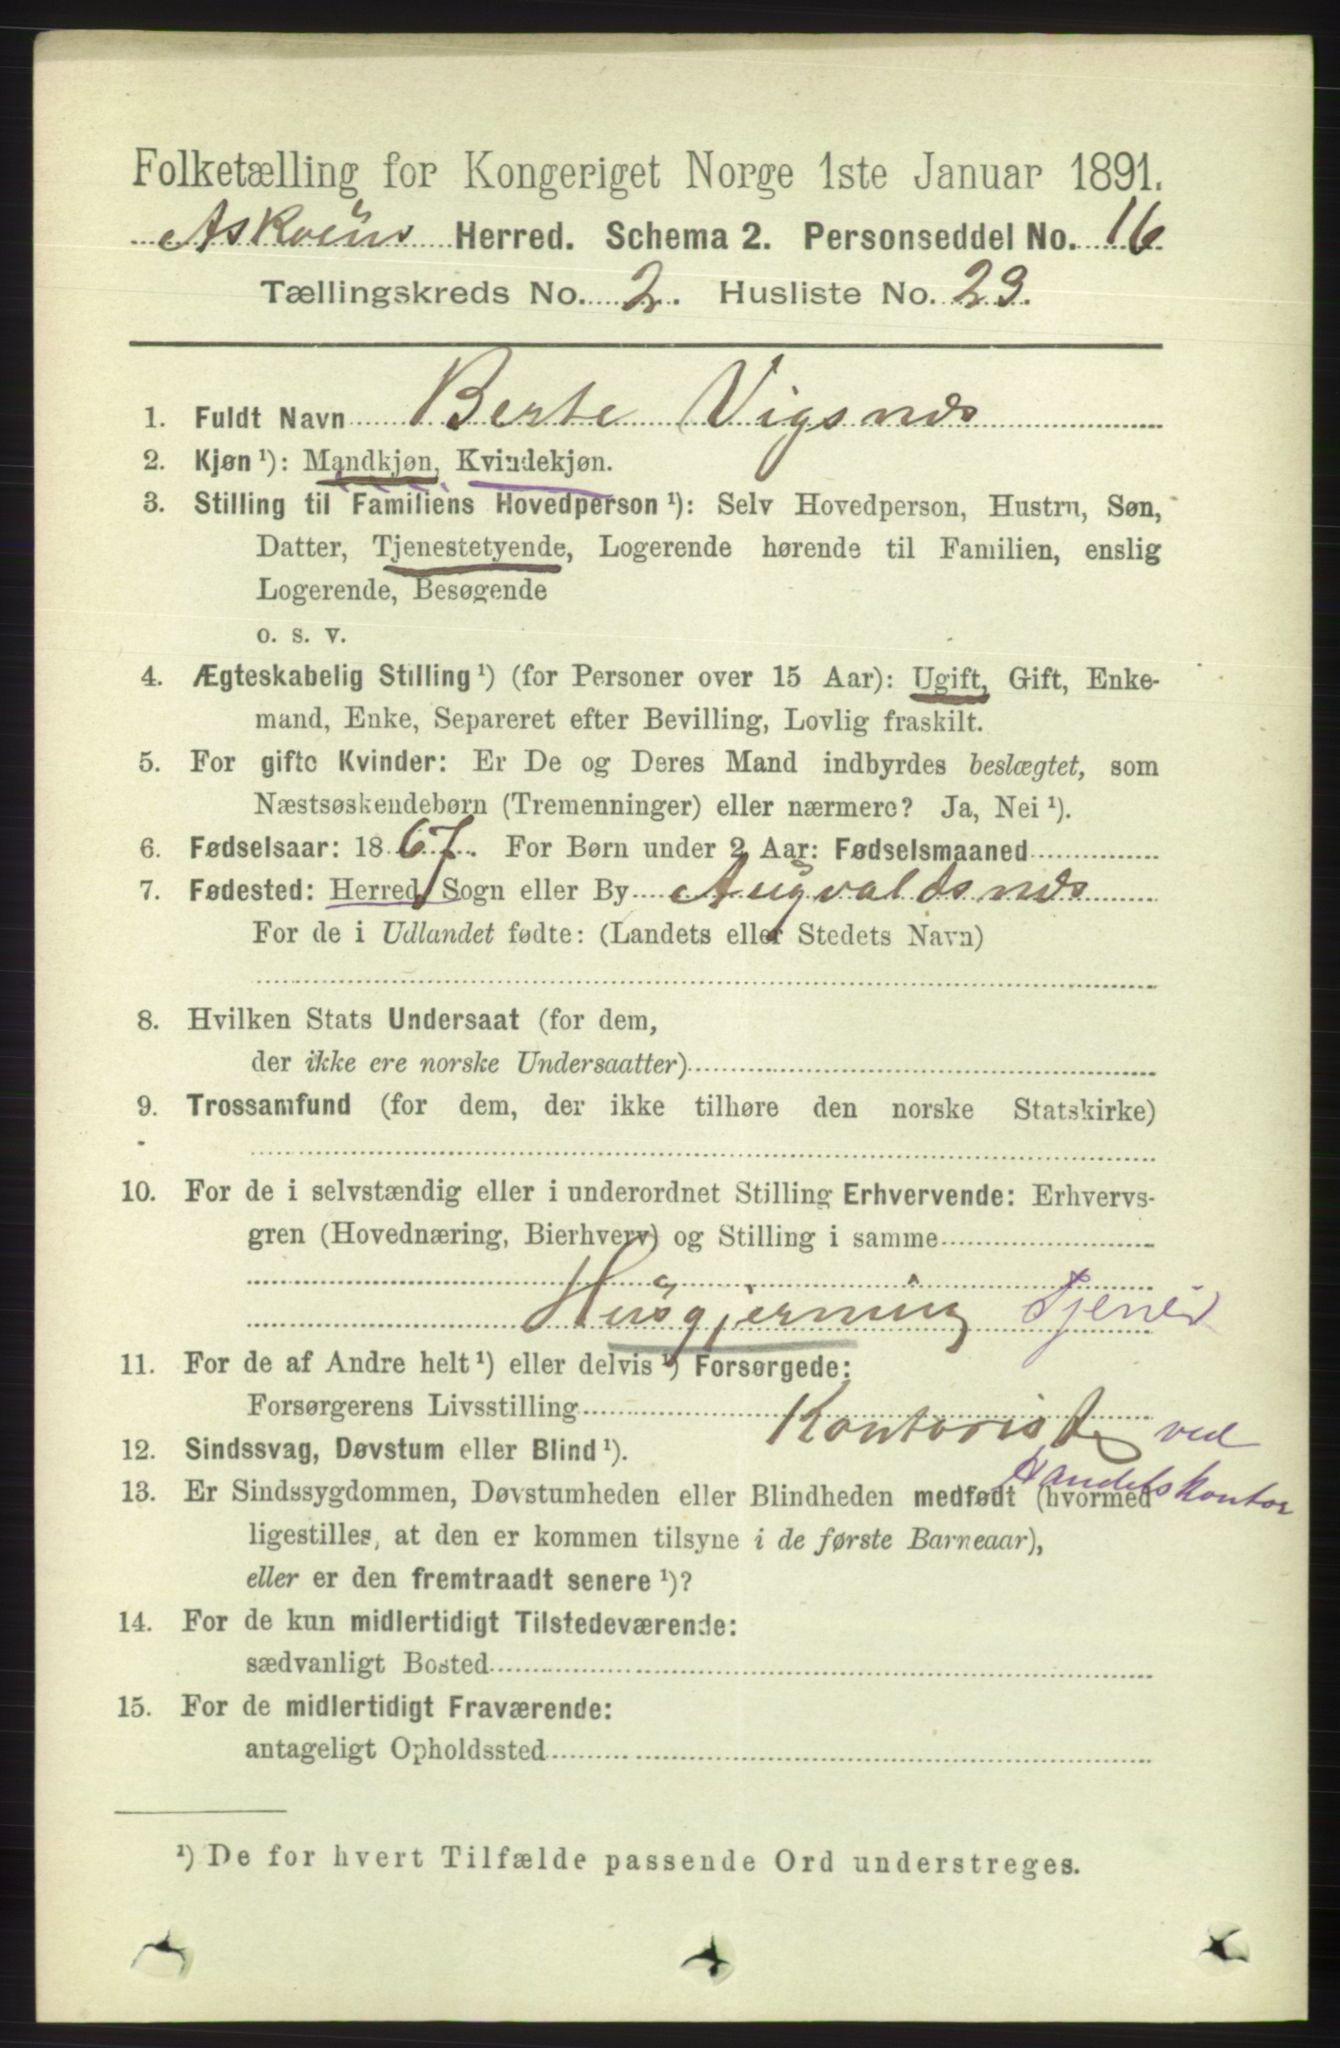 Folketælling for Kongeriget Norge 1ste Januar 1891.
Askøens Herred. Schema 2. Personseddel No. 16
Tællingskreds No. 2. Husliste No. 23.
1. Fuldt Navn Berte Vigsnes
2. Kjøn ¹): Mandkjøn, Kvindekjøn.
3. Stilling til Familiens Hovedperson ¹): Selv Hovedperson, Hustru, Søn,
Datter, Tjenestetyende, Logerende hørende til Familien, enslig
Logerende, Besøgende
o. s. v.
4. Ægteskabelig Stilling ¹) (for Personer over 15 Aar): Ugift, Gift, Enke-
mand, Enke, Separeret efter Bevilling, Lovlig fraskilt.
5. For gifte Kvinder: Er De og Deres Mand indbyrdes beslægtet, som
Næstsøskendebørn (Tremenninger) eller nærmere? Ja, Nei ¹).
6. Fødselsaar: 1867. For Børn under 2 Aar: Fødselsmaaned
7. Fødested: Herred, Sogn eller By Augvaldsnes
For de i Udlandet fødte: (Landets eller Stedets Navn)
8. Hvilken Stats Undersaat (for dem,
der ikke ere norske Undersaatter)
9. Trossamfund (for dem, der ikke tilhøre den norske Statskirke)
10. For de i selvstændig eller i underordnet Stilling Erhvervende: Erhvervs-
gren (Hovednæring, Bierhverv) og Stilling i samme
Husgjerning
11. For de af Andre helt ¹) eller delvis ¹) Forsørgede:
Forsørgerens Livsstilling Kontorist ved
12. Sindssvag, Døvstum eller Blind ¹).
Handelskontor
13. Er Sindssygdommen, Døvstumheden eller Blindheden medfødt (hvormed
ligestilles, at den er kommen tilsyne i de første Barneaar),
eller er den fremtraadt senere ¹)?
14. For de kun midlertidigt Tilstedeværende:
sædvanligt Bosted
15. For de midlertidigt Fraværende:
antageligt Opholdssted
¹) De for hvert Tilfælde passende Ord understreges.